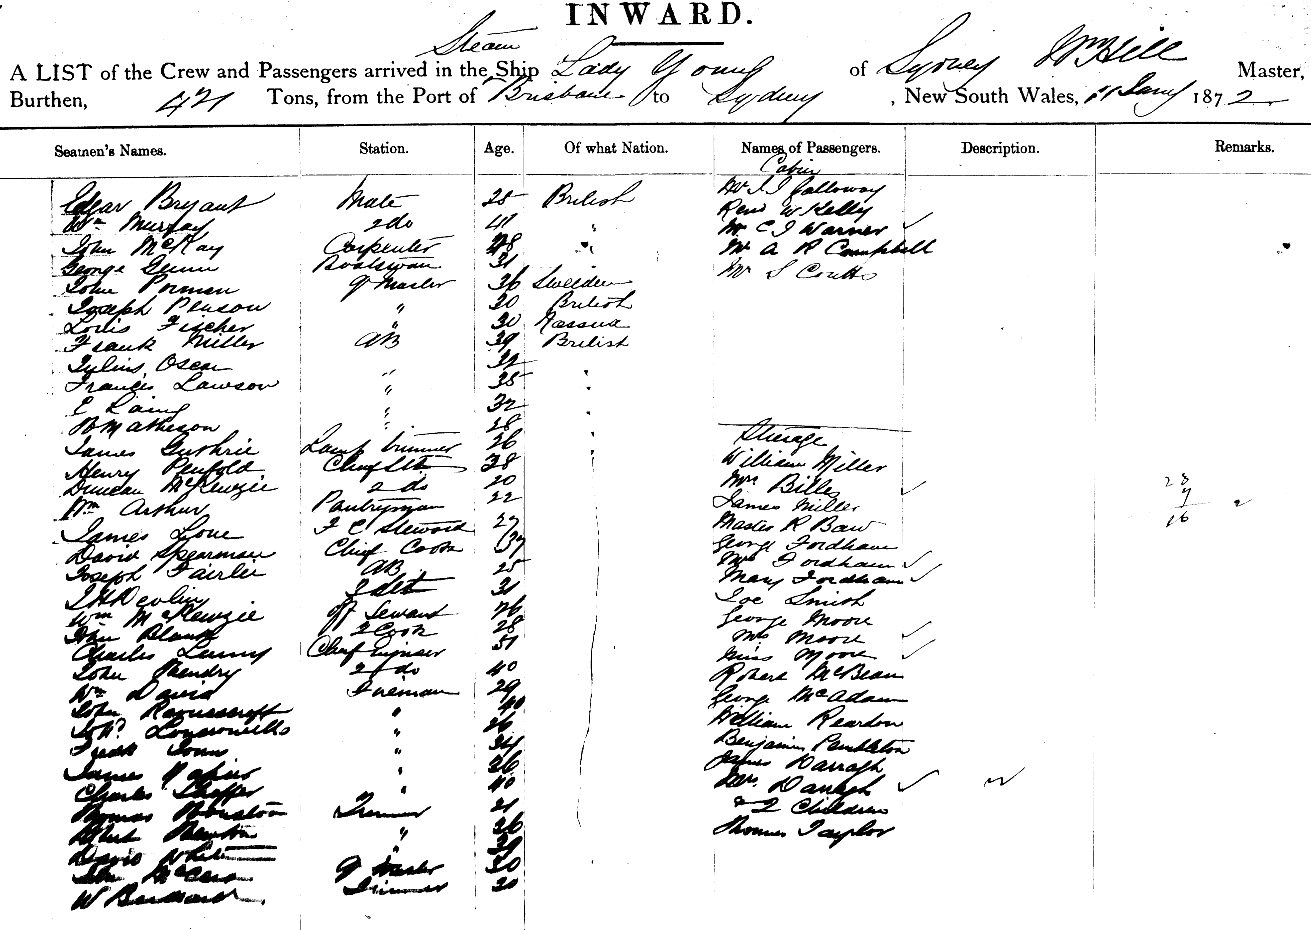 INWARD.
Steam
A LIST of the Crew and Passengers arrived in the Ship Lady Young of Sydney Wm Hill Master,
Burthen, 421 Tons, from the Port of Brisbane to Sydney, New South Wales, 11 Jany 1872
Seamen's Names. Station. Age. Of what Nation. Names of Passengers. Description. Remarks.
Cabin
Edgar Bryant Mate 25 British Galloway
Wm Murray 2 do 41 " Revd W Kelly
John McKay Carpenter 48 " Mr C J Warner
George Gunn Boatswain 31 Mr A R Campbell
John Q Master 36 Sweeden Mr S Coutts
Joseph Penson " 30 British
Louis Fischer " 30
Frank Miller AB 39 British
Julius Oscar 32
Francis Lawson " 25 "
E Laing " 32 "
Matheson " 28 "
James Guthrie Lamp trimmer 26 " Steerage
Henry Penfold Chief Std 38 William Miller
Duncan McKenzie 2 do 20 Mrs
Wm Arthur Pantryman 22 James Miller
James Love F C Steward 27 Master R
David Spearman Chief Cook 37 George Fordham
Joseph Fairlie AB 25 Mrs Fordham
J H Devlin 2 Std 31 Mary Fordham
Wm McKenzie Off Servant 26 Joe Smith
John Bland 2 Cook 28 George Moore
Charles Chief Enginer 51 Mrs Moore
John Hendry 2 do 40 Miss Moore
Wm David Fireman 29 Robert McBean
John Ravenscroft " 40 George McAdam
" 26 William Reardon
Fredk " 24 Benjamin Pendleton
James " 26 James Darragh
Charles " 40 Mrs Darragh
Thomas Houston Trimmer 21 & 2 Children
" 26 Thomas Taylor
David White "
John Q Master 20
W Trimmer 20
23
7
16